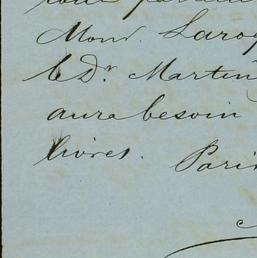 Monr. Laroq
le Dr. Martin
aura besoin
livres. Paris